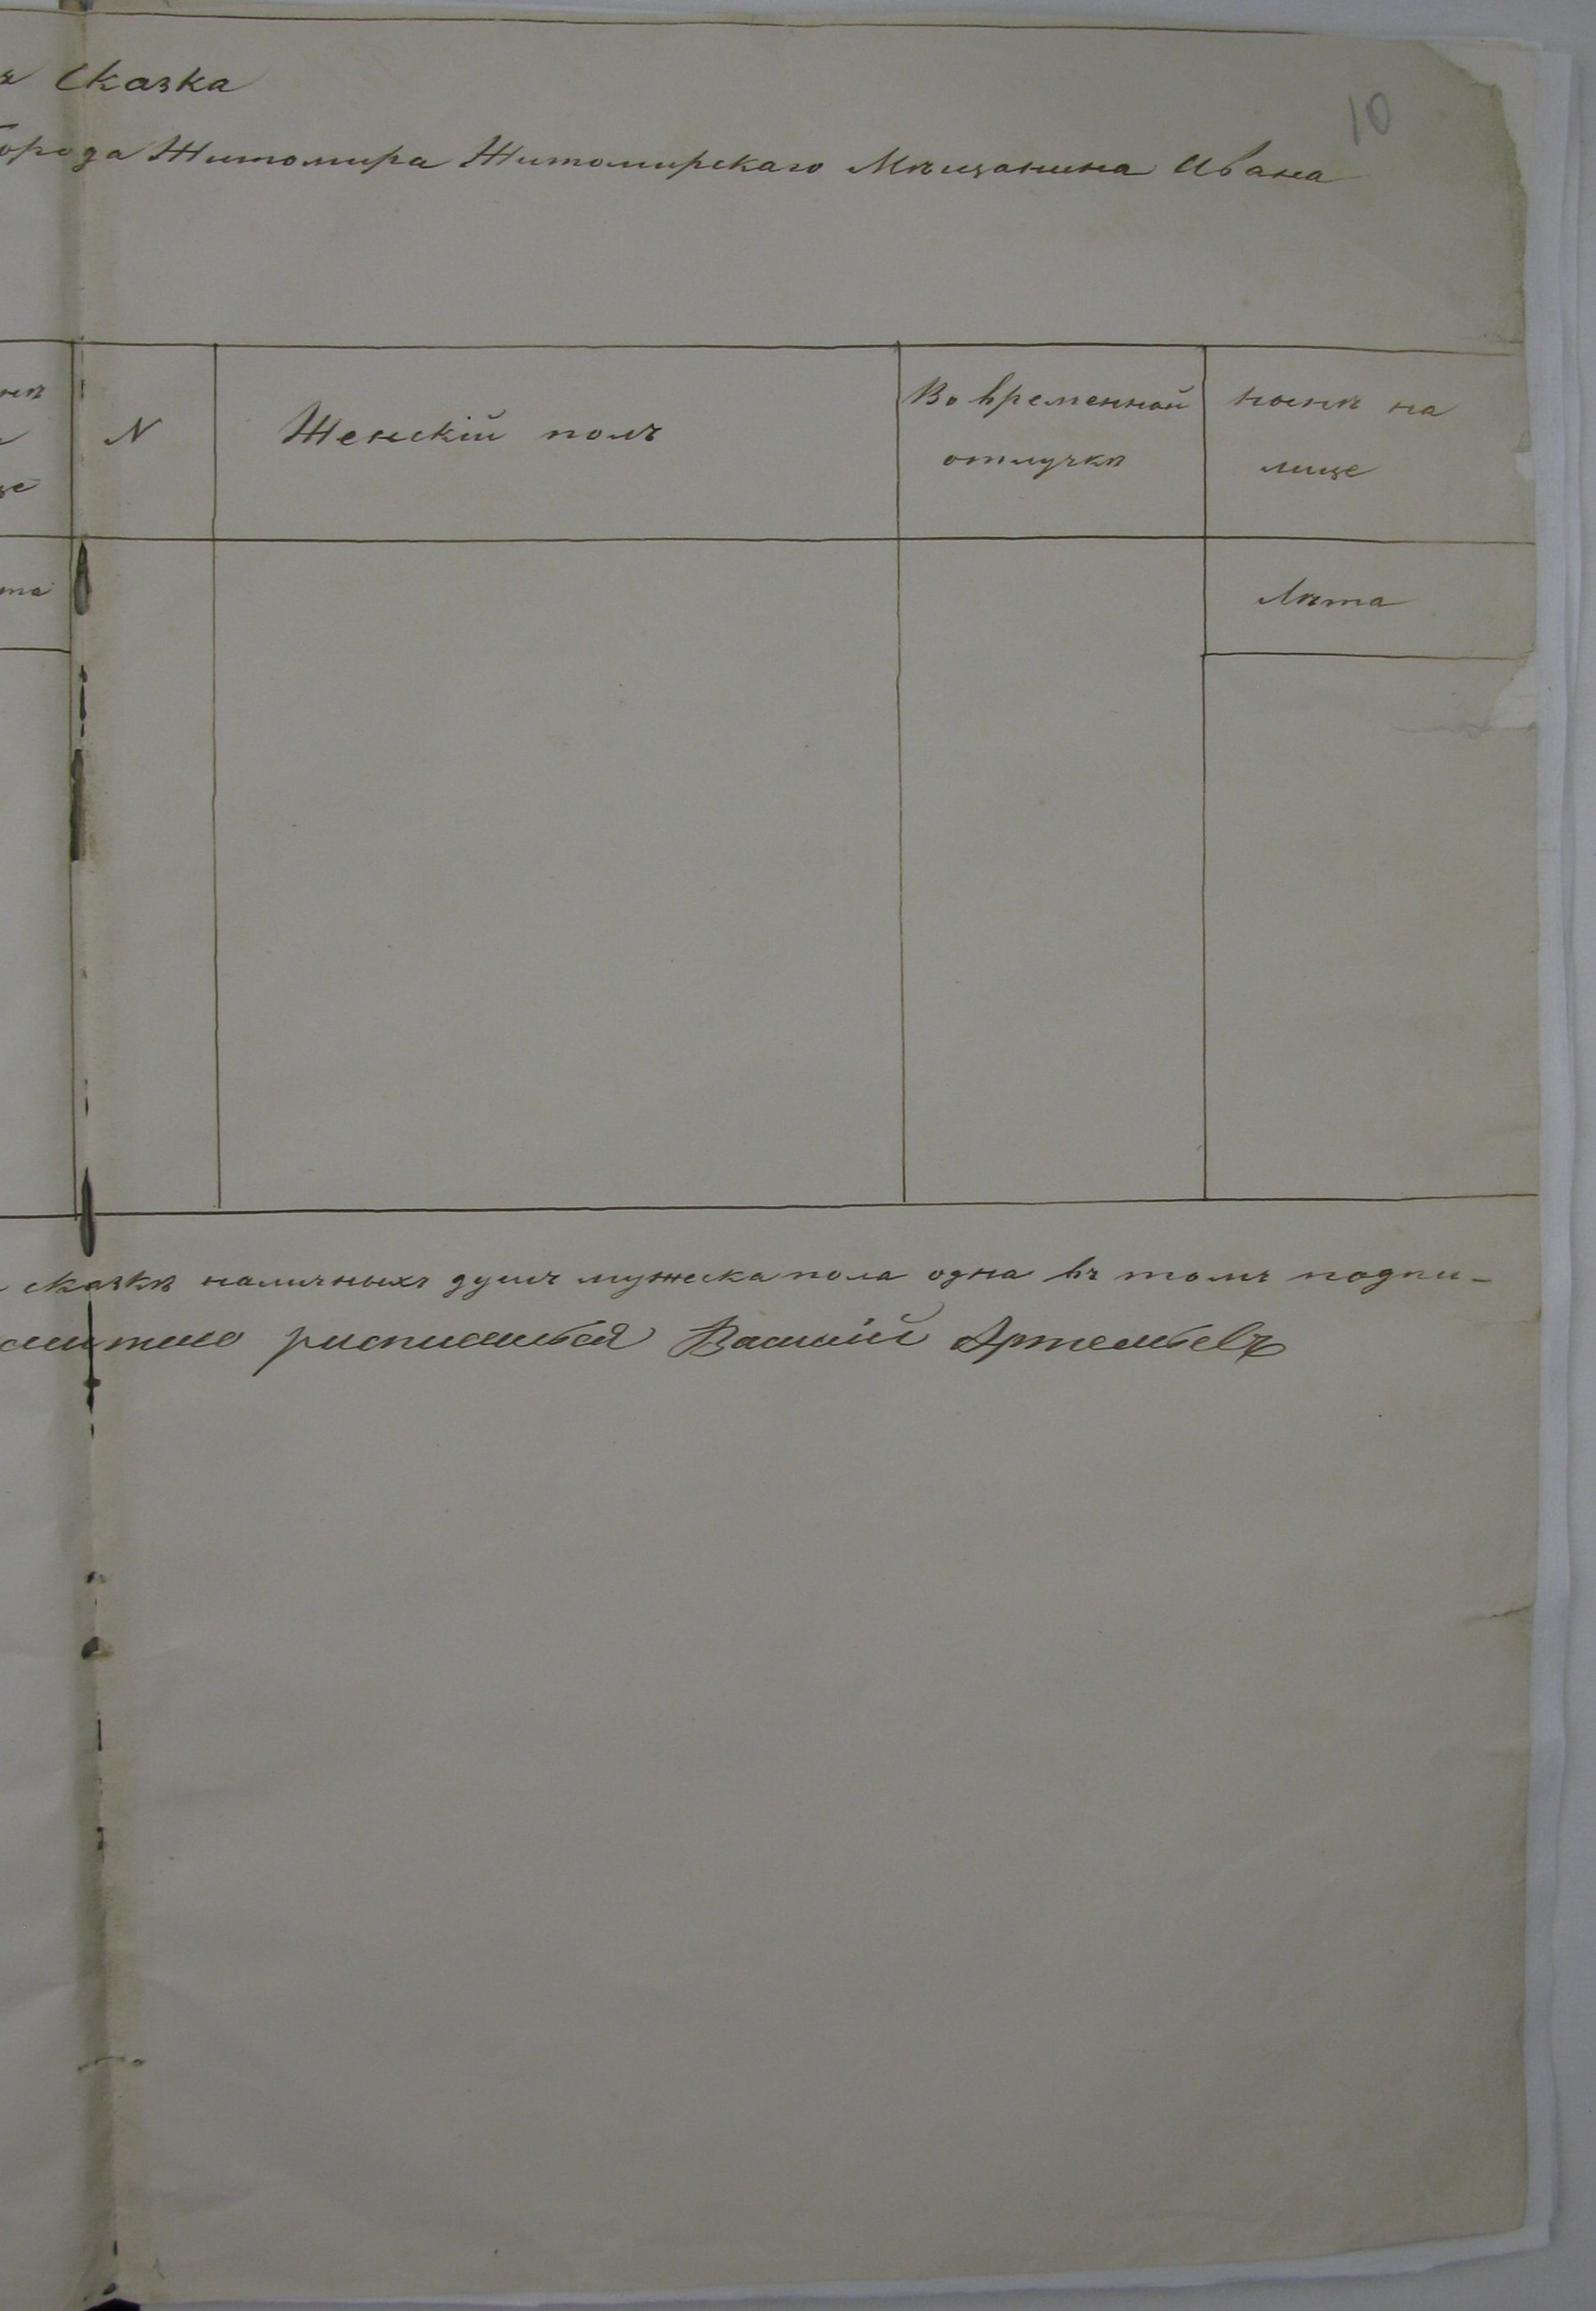 Сказка
10
орода Житомира Житомирскаго Мѣщанина Ивана
N
Женскій полъ
Во временной
отлучкѣ
ноннѣ на
лице
Лѣта
та
сказкѣ наличныхъ душъ мужеска пола одна въ томъ подпи-
Василий Артемьевъ